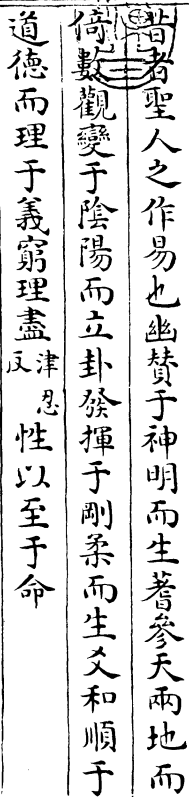 昔者聖人之作易也幽賛于神明而生蓍參天兩地而
倚數觀變于陰陽而立卦發揮于剛柔而生爻和順于
道德而理于義窮理盡津忍反性以至于命